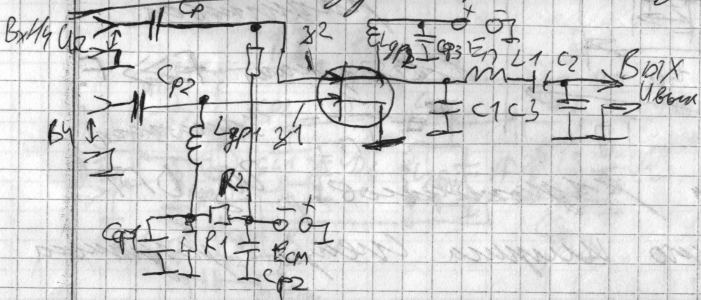 Cр
+ -
Вх НЧ U2
з2
Lдр2
Cр3
Eп
L1
C2
ВЫХ
Uвых
Cр2
ВЧ
Lдр1
з1
C1
C3
R2
- +
Cф1
R1
Eсм
Cр2